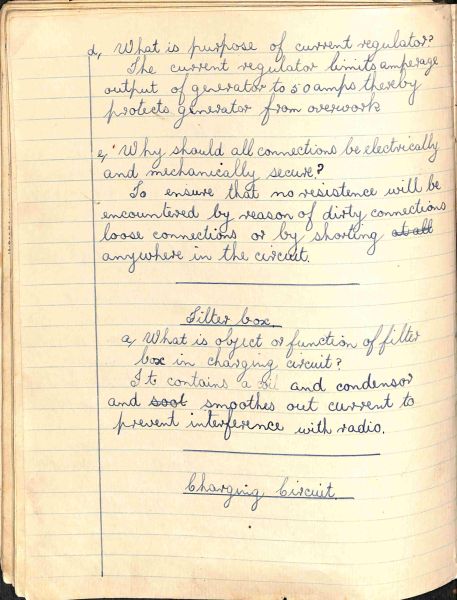 d, What is purpose of current regulator?
The current regulator limits amperage
output of generator to 50 amps thereby
protects generator from overwork
e, Why should all connections be electrically
and mechanically secure?
To ensure that no resistence will be
encountered by reason of dirty connections
loose connections or by shorting at all
anywhere in the circuit.
Filter box.
a, What is object or function of filter
box in charging circuit?
It contains a and condensor
and soot smoothes out current to
prevent interference with radio.
Charging Circuit.